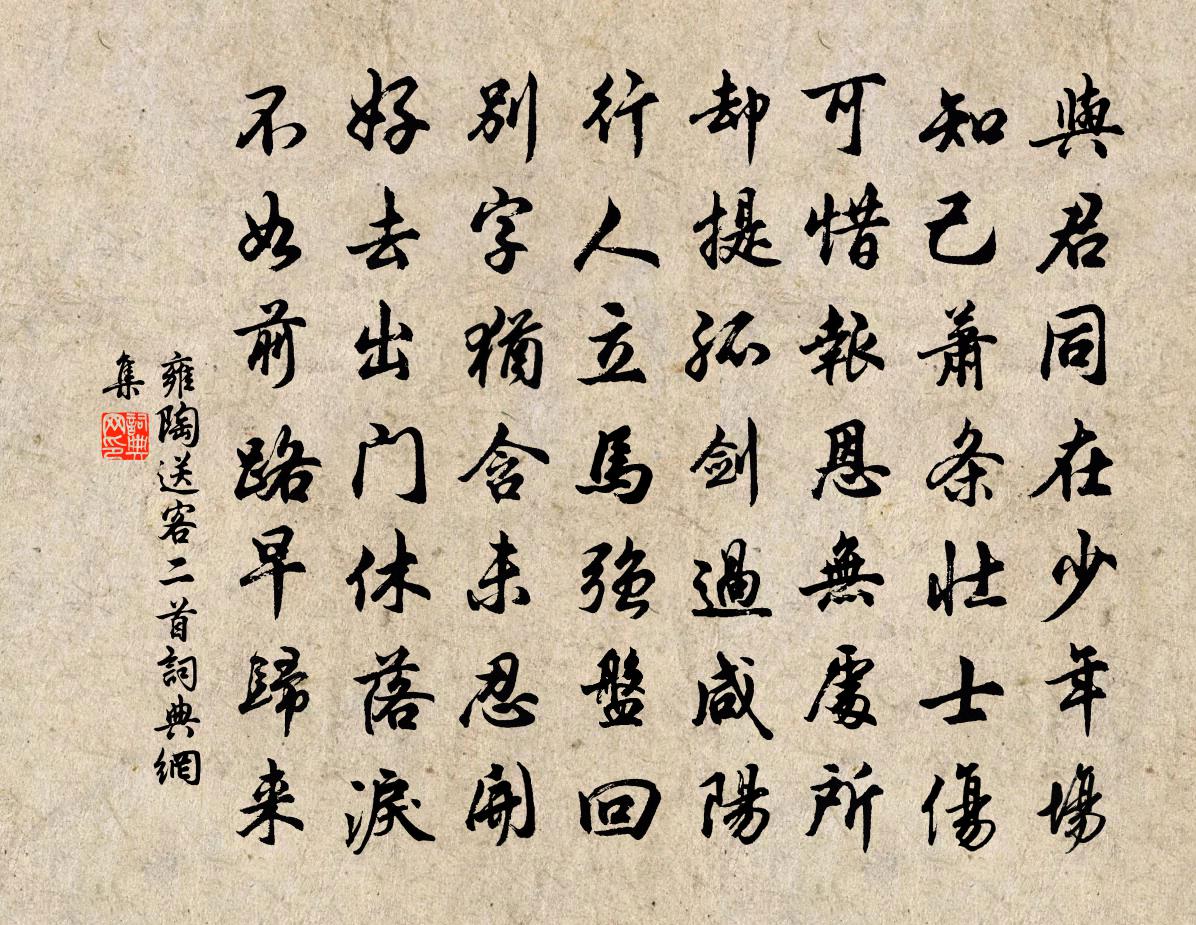 與君同在少年場
知己蕭条壮士傷
可惜報恩無處所
却提孤剑過咸陽
行人立馬强盤回
别字猶含未忍開
好去出门休落淚
不如前路早歸来
雍陶送客二首詞典網
集
詞典
网印